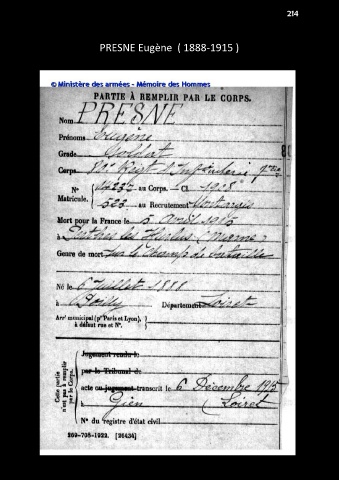 214
PRESNE Eugène ( 1888-1915 )
© Ministère des armées - Mémoire des Hommes
PARTIE À REMPLIR PAR LE CORPS.
Nom PRESNE
Prénoms Eugène
Grade Soldat
Corps Régt d'Infanterie
N° au Corps. Cl. 1908
Matricule. 523 au Recrutement Montargis
Mort pour la France le 5 Avril 1915
à Hurlus (Marne)
Genre de mort sur le champ de bataille
Né le 6 Juillet 1888
à Département Loiret
Arr' municipal (p' Paris et Lyon),
à défaut rue et N°.
Cette partie
n'est pas à remplir
par le Corps.
Jugement rendu le
par le Tribunal de
acte ou jugement transcrit le 6 Décembre 1915
Gien Loiret
N° du registre d'état civil
269-708-1922. [26434]